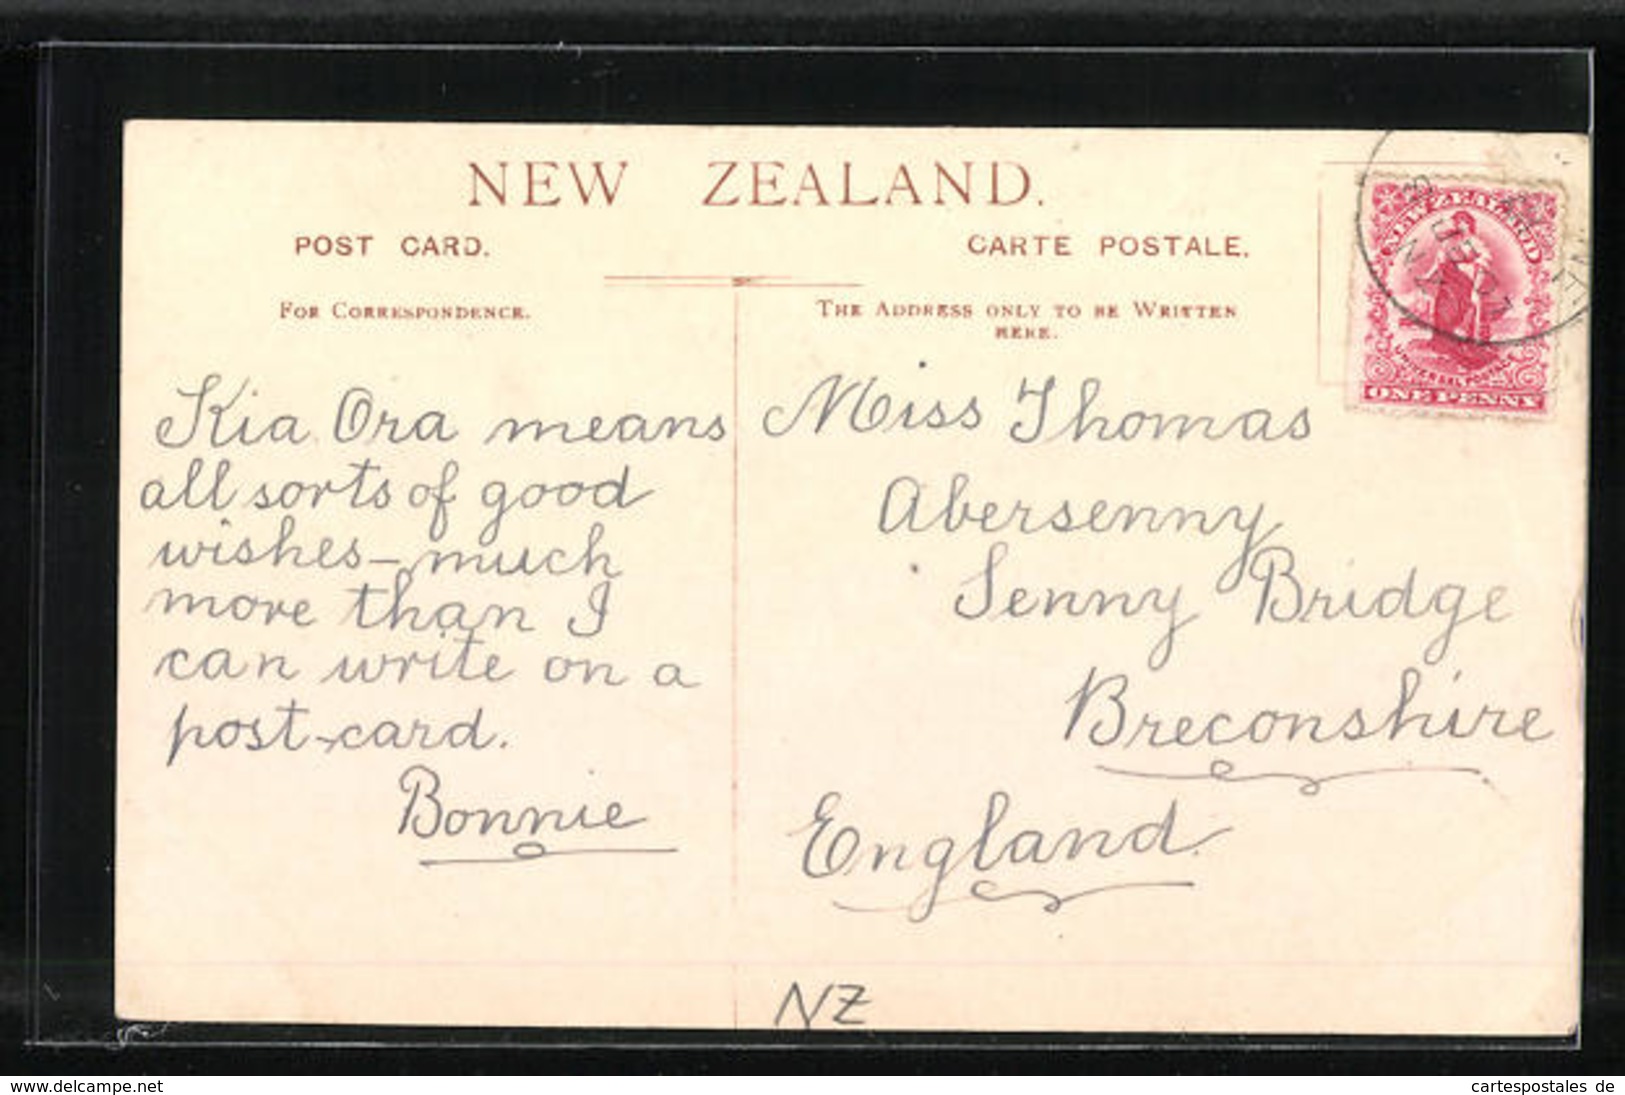 NEW ZEALAND.
POST CARD.
CARTE POSTALE.
FOR CORRESPONDENCE.
THE ADDRESS ONLY TO BE WRITTEN
HERE.
Kia Ora means
all sorts of good
wishes – much
more than I
can write on a
post-card.
Bonnie
Miss Thomas
Abersenny
Senny Bridge
Breconshire
England.
NZ
NEW ZEALAND
UNIVERSAL POSTAGE
ONE PENNY
www.delcampe.net
cartespostales de